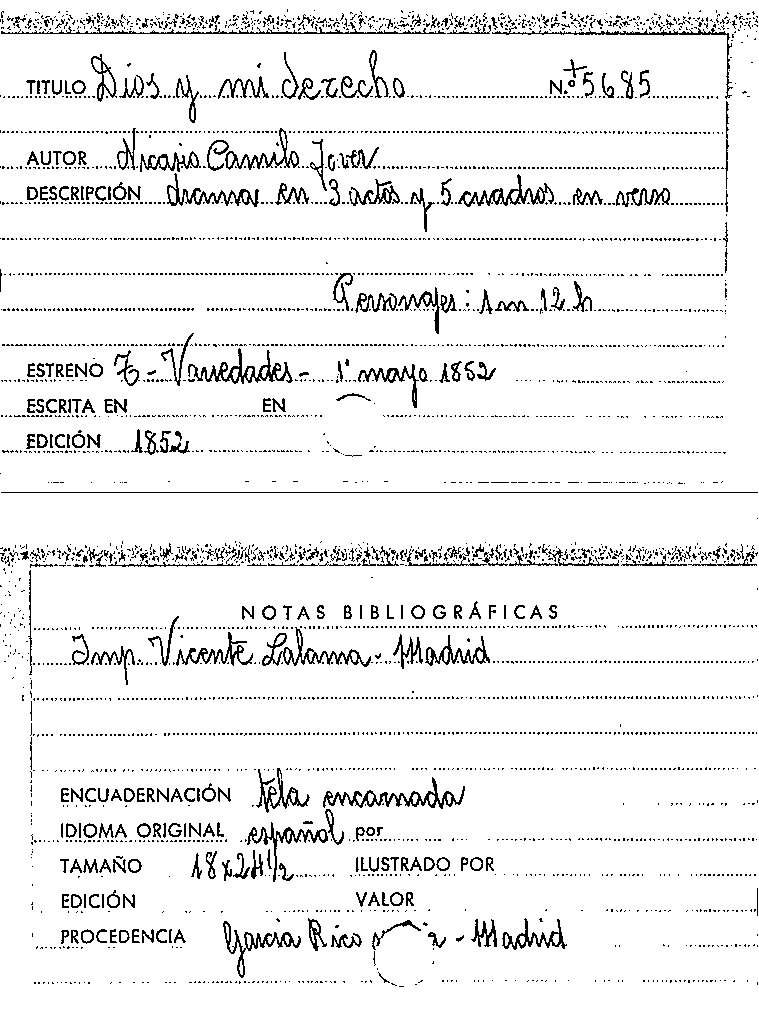 TITULO Dios y mi derecho N.º +5685
AUTOR Nicasio Camilo Jover
DESCRIPCIÓN drama en 3 actos y 5 cuadros en verso
Personajes: 1 m 12 h
ESTRENO T-Variedades- 1º mayo 1852
ESCRITA EN EN
EDICIÓN 1852
NOTAS BIBLIOGRÁFICAS
Imp. Vicente Lalama - Madrid
ENCUADERNACIÓN tela encarnada
IDIOMA ORIGINAL español por
TAMAÑO 18x24½ ILUSTRADO POR
EDICIÓN VALOR
PROCEDENCIA García Rico - Madrid